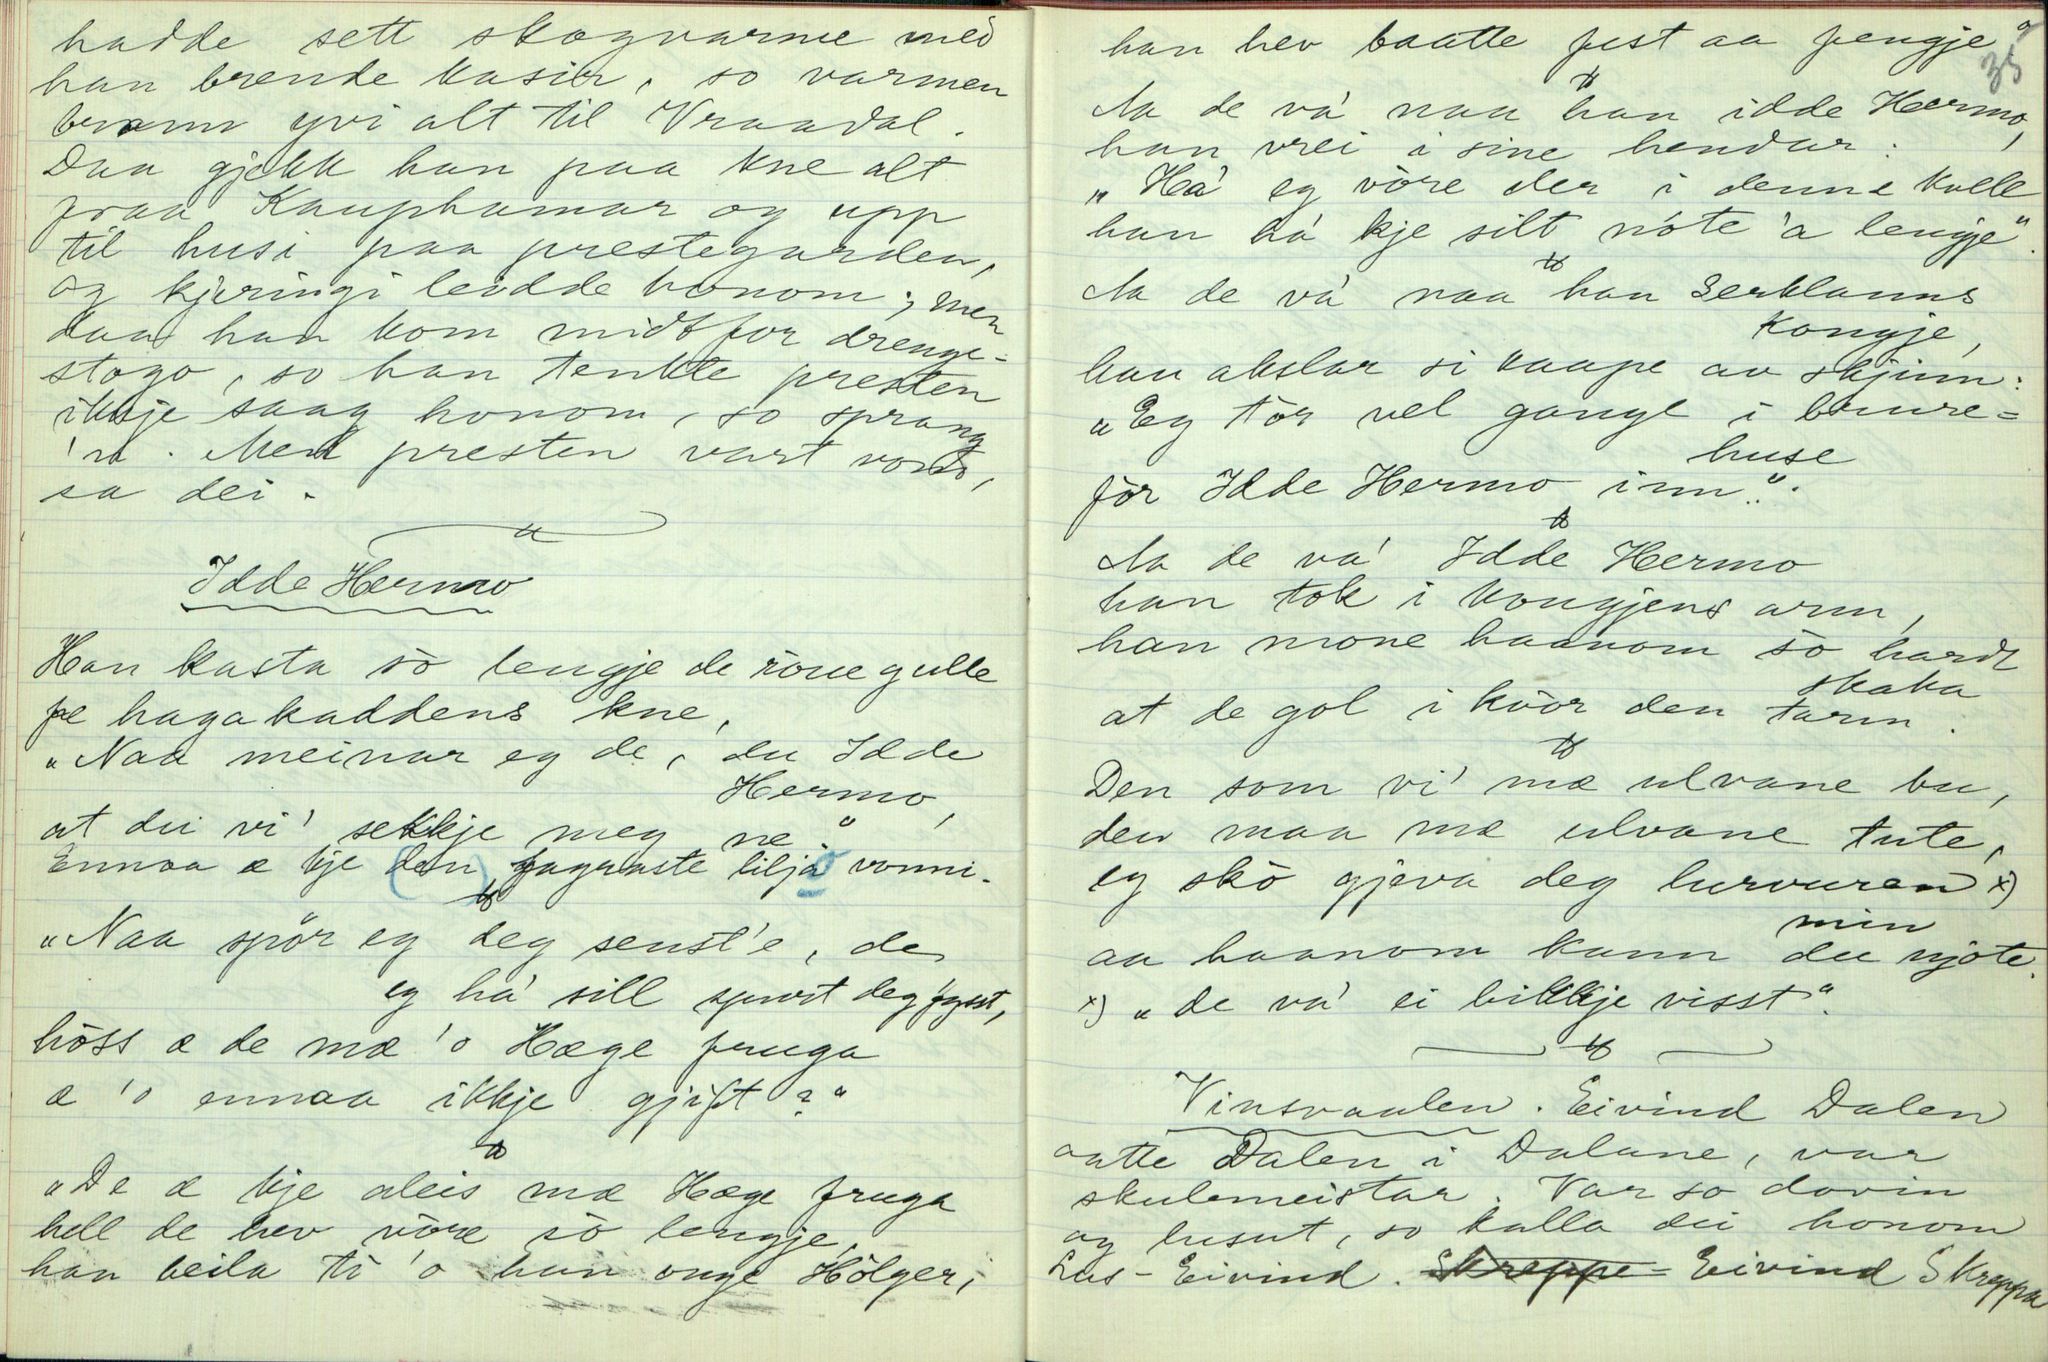 hadde sett skogvarme med
han brende kasir, so varmen
brann yvi alt til Vraadal.
Daa gjekk han paa kne alt
fraa Kauphamar og upp
til husi paa prestegarden,
og kjeringi leidde honom; men
daa han kom midt for drenge-
stogo, so han tenkte presten
ikkje saag honom, so sprang
'n. Men presten vart vond,
sa dei.
Idde Hermo
Han kasta sò lengje de röue gulle
pe hagakaddens kne,
"Naa meinar eg de, du Idde
Hermo,
at dei vi' sekkje meg ne"
Ennaa æ kje (den) fagraste lilja vonni.
"Naa spör eg deg senst'e, de
eg há sill spurt deg fysst,
hòss æ de mæ 'o Hæge fruga
æ 'o ennaa ikkje gjift?"
"De æ kje aleis mæ Hæge fruga
hell de hev vòre sò lengje,
han beila ti 'o han onge Hölger,
35
han hev baatte fest aa fengje"
Aa de vá naa han idde Hermo,
han vrei i sine hendar:
"Há eg vòre der i denne kalle
han há kje silt nóte 'a lengje".
Aa de vá naa han Serklanns
kongje,
han akslar si kaape av skjinn:
"Eg tòr vel gange i brure=
huse
för Idde Hermo inn".
Aa de vá Idde Hermo
han tok i kongjens arm,
han mone haanom sò hardt
skaka
at de gol i kvòr den tarm.
Den som vi' mæ ulvane bu,
den maa mæ ulvane tute,
eg skò gjeva deg hurvuren x)
min
aa haanom kann du njote.
x) "de vá ei bikkje visst".
Vinsvaalen. Eivind Dalen
aatte Dalen i Dalane, var
skulemeistar. Var so dovin
og lusut, so kalla dei honom
Lus-Eivind. Skreppe- Eivind Skreppa